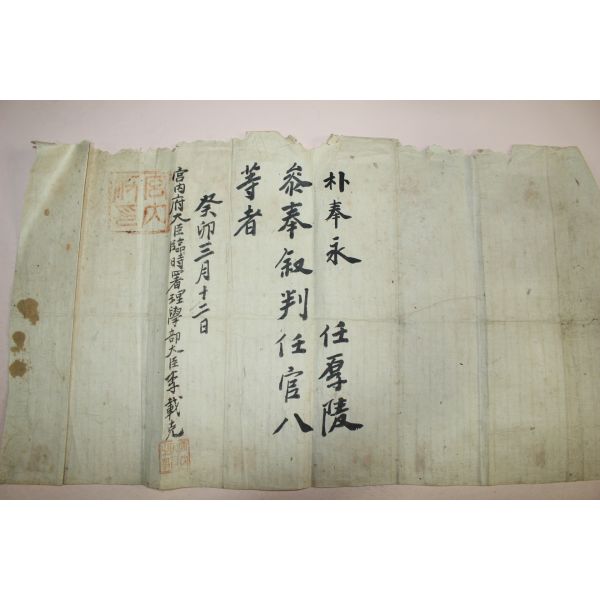 朴奉永 任厚陵
叅奉叙判任官八
等者
癸卯三月十二日
宮內府大臣臨時署理學部大臣李載克
宮內府印